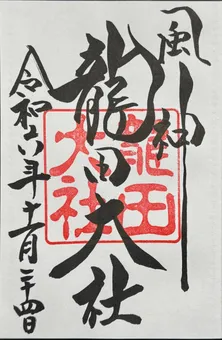 風神
龍田大社
龍田大社
令和六年十一月二十四日